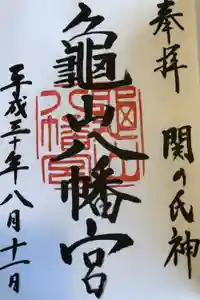 奉拝
関の氏神
亀山八幡宮
平成三十年八月十一日